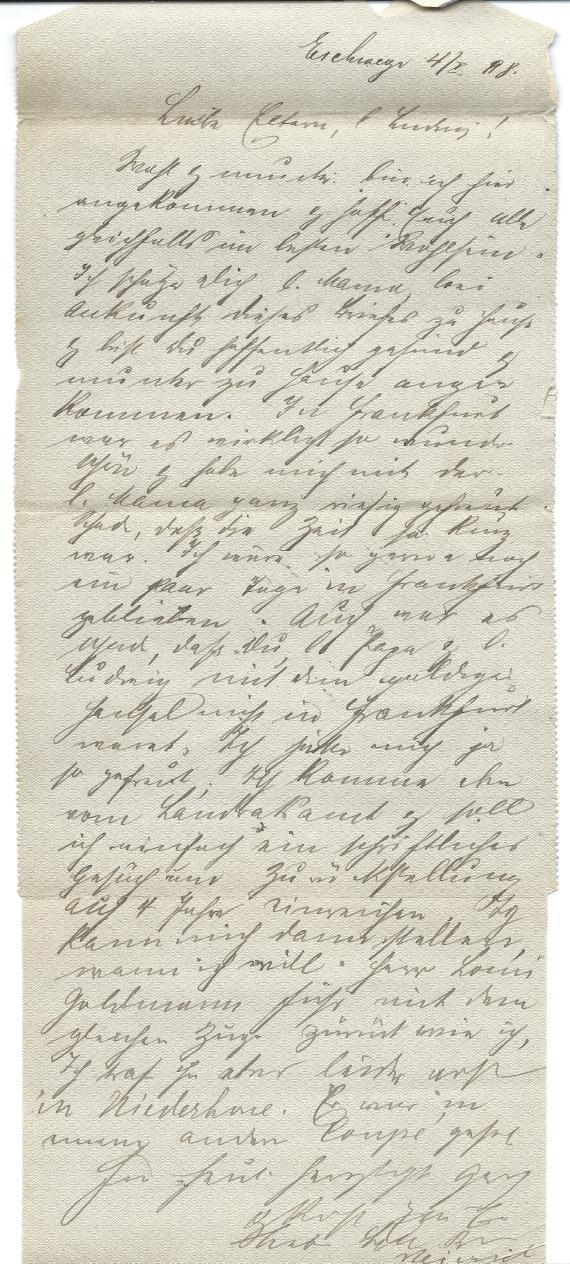 Eschwege 4/X. 98.
Liebe Eltern, l. Ludwig!
Wohl & munter bin ich hier
angekommen & hoffe Euch alle
gleichfalls im besten Wohlsein.
Ich schätze Dich l. Mama, bei
Ankunft dieses Briefes zu Hause
& bist Du hoffentlich gesund &
munter zu Hause ange-
kommen. In Frankfurt
war es wirklich so wunder-
schön & habe mich mit der
l. Mama ganz riesig gefreut
Schad, daß die Zeit so kurz
war. Ich wäre so gerne noch
ein paar Tage in Frankfurt
geblieben. Auch war es
schad, daß Du, l. Papa & l.
Ludwig mit dem goldigen
nicht in Frankfurt
waret. Ich hätte mich ja
so gefreut. Ich komme eben
vom Landratsamt & soll
ich einfach ein schriftliches
Gesuch um Zurückstellung
auf 4 Jahre einreichen. Ich
kann mich dann stellen,
wann ich will. Herr Louis
Goldmann fuhr mit dem
gleichen Zuge zurück wie ich,
Ich traf ihn aber leider erst
in Niederhone. Er war in
einem andern Coupé
Für heute herzlichst
& Kuß